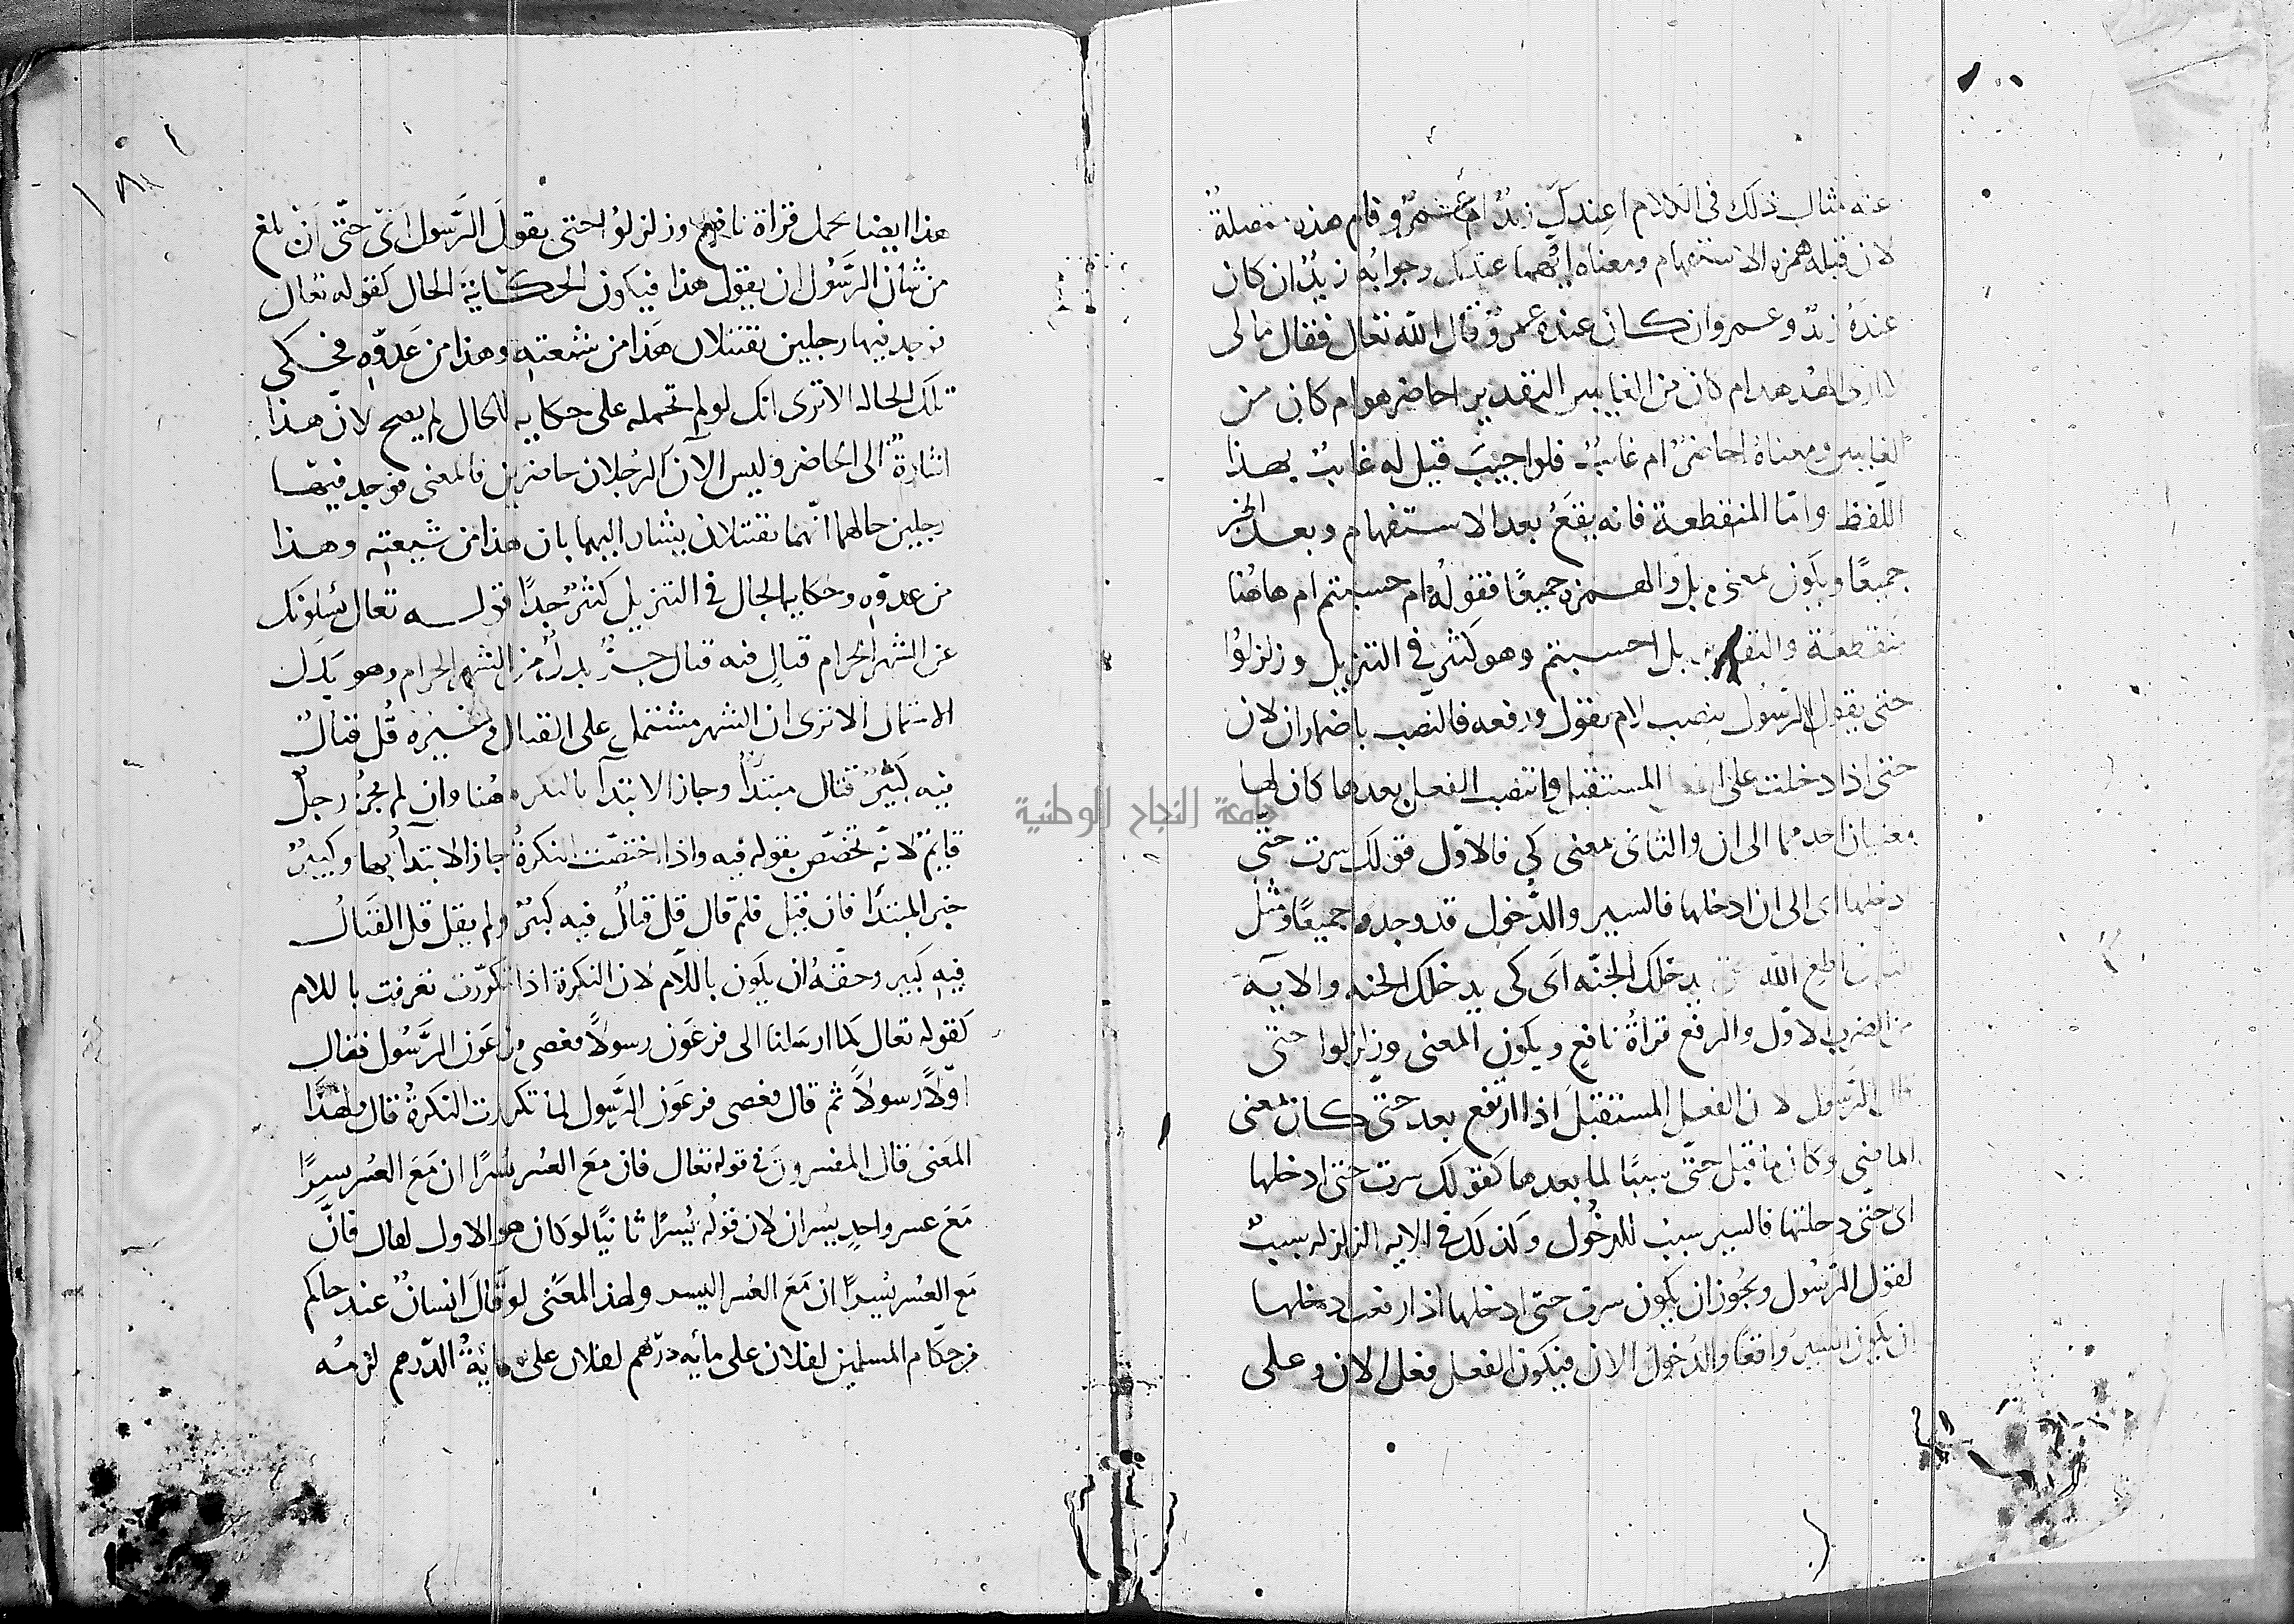 عنه مثال ذلك فى الكلام اعندك زيدٌ ام عمرٌو فام هذه متصلةٌ
لان قبله همزه الاستفهام ومعناه ايّهما عندك وجوابُه زيدٌ ان كان
عندَهُ زيدٌ وعمرو ان كان عنده عمروٌ قال الله تعالى فقال مالى
لا ارى الهُدهد ام كان من الغايبين التقدير احاضر هو ام كان من
الغايبين ومعناهُ احاضرٌ ام غايبٌ فلو اجيبَ قيل له غايبٌ بهذا
اللّفظِ وامّا المنقطعة فانه يقعُ بعد الاستفهام وبعد الخبر
جميعًا ويكون بمعنى بل والهمزه جميعًا فقولُه ام حسبتم ام هاهُنا
منقطعة والتقدير بل احسبتم وهو كثير فى التنزيل وزلزلوُا
حتى يقول الرّسول بنصب لام يقول ورفعه فالنصب باضمار ان لان
حتى اذا دخلت على الفعل المستقبل وانتصب الفعل بعدها كان لها
معنيان احدهما الى ان والثانى بمعنى كى فالاوّل قولك سرت حتّى
ادخلها اى الى ان ادخلها فالسير والدُّخول قد وجدا جميعًا ومثل
الثانى اطع الله حتى يدخلك الجنّه اَى كى يدخلك الجنه والآيةَ
من الضرب الاوّل والرفع قراةُ نافع ويكون المعنى وزلزلوا حتى
قال الرّسول لان الفعل المستقبلَ اذا ارتفع بعد حتّى كان بمعنى
الماضى وكان ما قبل حتّى سببًا لما بعدها كقولك سرت حتى ادخلها
اى حتّى دخلتها فالسير سببٌ للدخُول وكذلك فى الايه الزلزله سببٌ
لقول الرّسُول ويجُوز ان يكون سرت حتى ادخلها اذا رفعت ادخلها
ان يكون السير واقعًا والدُخول الان فيكون الفعل فعل الان وعلى
هذا ايضا يحمل قراة نافع وزلزلوُا حتى يقولُ الرَّسول اى حتّى اَنْ بلغ
من شأن الرَّسُول ان يقول هذا فيكون الحكايةَ الحال كقوله تعالى
فوجد فيها رجلين يقتتلان هَذا من شيعته وهذا من عَدوّه فحكى
تلك الحاله الا ترى انك لو لم تحمله على حكايه الحال لم يصح لانّ هذا
اشارةٌ الى الحاضر وليس الآن الرجُلان حاضرين فالمعنى فوجد فيها
رجلين حالهما انّهما يقتتلان يشار اليهما بان هذا من شيعتِه وهذا
من عدوّه وحكايه الحال فى التنزيل كثيرٌ جدًا قوله تعالى يسئلونك
عن الشهر الحرام قتالٍ فيه قتال جرٌّ بدلٌ من الشهر الحرام وهو بَدَل
الاشتمال الا ترى ان الشهر مشتمل على القتال وغيره قُل قتالٌ
فيه كبيرٌ قتال مبتدأٌ وجاز الابتدآ بالنكره هُنا وان لم يجُز رجلٌ
قايمٌ لانّه تخصّص بقوله فيه واذا اختصّت النكرةُ جاز الابتدأُ بها وكبيرٌ
خبر المبتدأ فان قيل فلم قال قل قتالٌ فيه كبيرٌ ولم يقل قل القتالُ
فيه كبير وحقّهُ ان يكون باللّام لان النكرة اذا تكرّرت تعرفت باللام
كقوله تعالى كما ارسَلنا الى فرعَون رسولاً فعصى فرعَون الرَّسُول فقال
اوّلاً رسولاً ثم قال فعصى فرعَون الرَّسول لما تكررت النكرةُ قال ولهذَا
المَعنى قال المفسرونَ فى قوله تعالى فان معَ العُسر يُسرًا ان مَعَ العُسر يسرًا
مَعَ عسر واحدٍ يسران لان قولُه يُسرًا ثانيًا لو كان هو الاول لقال فانَّ
مَع العُسر يُسرًا ان مَعَ العُسر اليسر ولهذ المعَنى لو قَالَ اِنسانٌ عند حاكم
من حكّام المسلمين لفلان على مأيه درهم لفلان على مايةُ الدّرهم لزمهُ
جامعة النجاح الوطنية